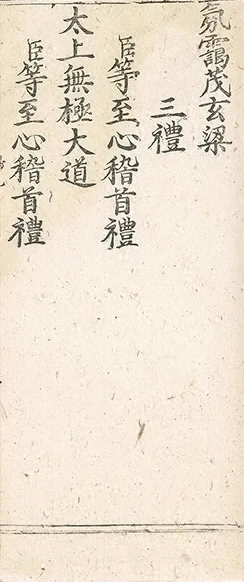 氛靄茂玄梁
三禮
臣等至心稽首禮
太上無極大道
臣等至心稽首禮